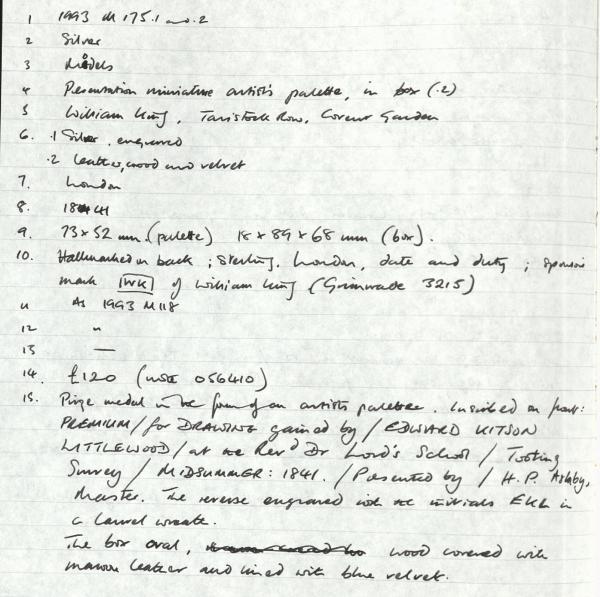 1 1993 M 175.1 and .2
2 Silver
3 Models
4 Presentation miniature artist's palette, in box (.2)
5 William King, Tavistock Row, Covent Garden
6. .1 Silver, engraved
.2 leather, wood and velvet
7. London
8. 1841
9. 73 x 52 mm. (palette) 18 x 89 x 68 mm (box).
10. Hallmarked on back ; Sterling, London, date and duty ; sponsors
mark WK of William King (Grimwade 3215)
11 As 1993 M118
12 "
13 —
14. £120 (note 056410)
15. Prize medal in the form of an artists palette. Inscribed on front:
PREMIUM / for DRAWING gained by / EDWARD KITSON
LITTLEWOOD / at the Revd Dr Lord's School / Tooting
Surrey / MIDSUMMER: 1841. / Presented by / H.P. Ashby,
Master. The reverse engraved with the initials EKL in
a laurel wreath.
The box oval, wood covered with
maroon leather and lined with blue velvet.